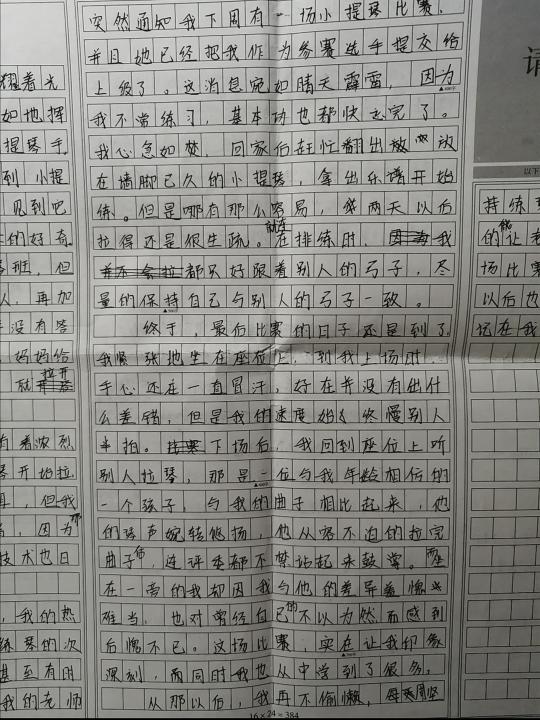 突然通知我下周有一场小提琴比赛，
并且她已经把我作为参赛选手提交给
上级了。这消息宛如晴天霹雳，因为
我不常练习，基本功也都快忘完了。
我心急如焚，回家后连忙翻出被放
在墙脚已久的小提琴，拿出乐谱开始
练。但是哪有那么容易，我两天以后
拉得还是很生疏。就连在排练时，我
都只好跟着别人的弓子，尽
量的保持自己与别人的弓子一致。
终于，最后比赛的日子还是到了。
我紧张地坐在座位上，到我上场时，
手心还在一直冒汗，好在并没有出什
么差错，但是我的速度始终慢别人
半拍。下场后，我回到座位上听
别人拉琴，那是一位与我年龄相仿的
一个孩子，与我的曲子相比起来，他
的琴声婉转悠扬，他从容不迫的拉完
曲子后，连评委都不禁站起来鼓掌。而坐
在一旁的我却因我与他的差异羞愧
难当，也对曾经自己的不以为然而感到
后悔不已。这场比赛，实在让我印象
深刻，而同时我也从中学到了很多。
从那以后，我再不偷懒，每天周坚
16×24=384
耀着光
如地挥
提琴手
到小提
见到吧
的好奇
琴班，但
人，再加
没有答
妈妈给
就拉开
有着浓烈
琴开始拉
但我
因为那
技术也日
我的热
练琴的次
甚至有时
我的老师
请
以下
持练
的能让者
场比赛
以后也
记在我